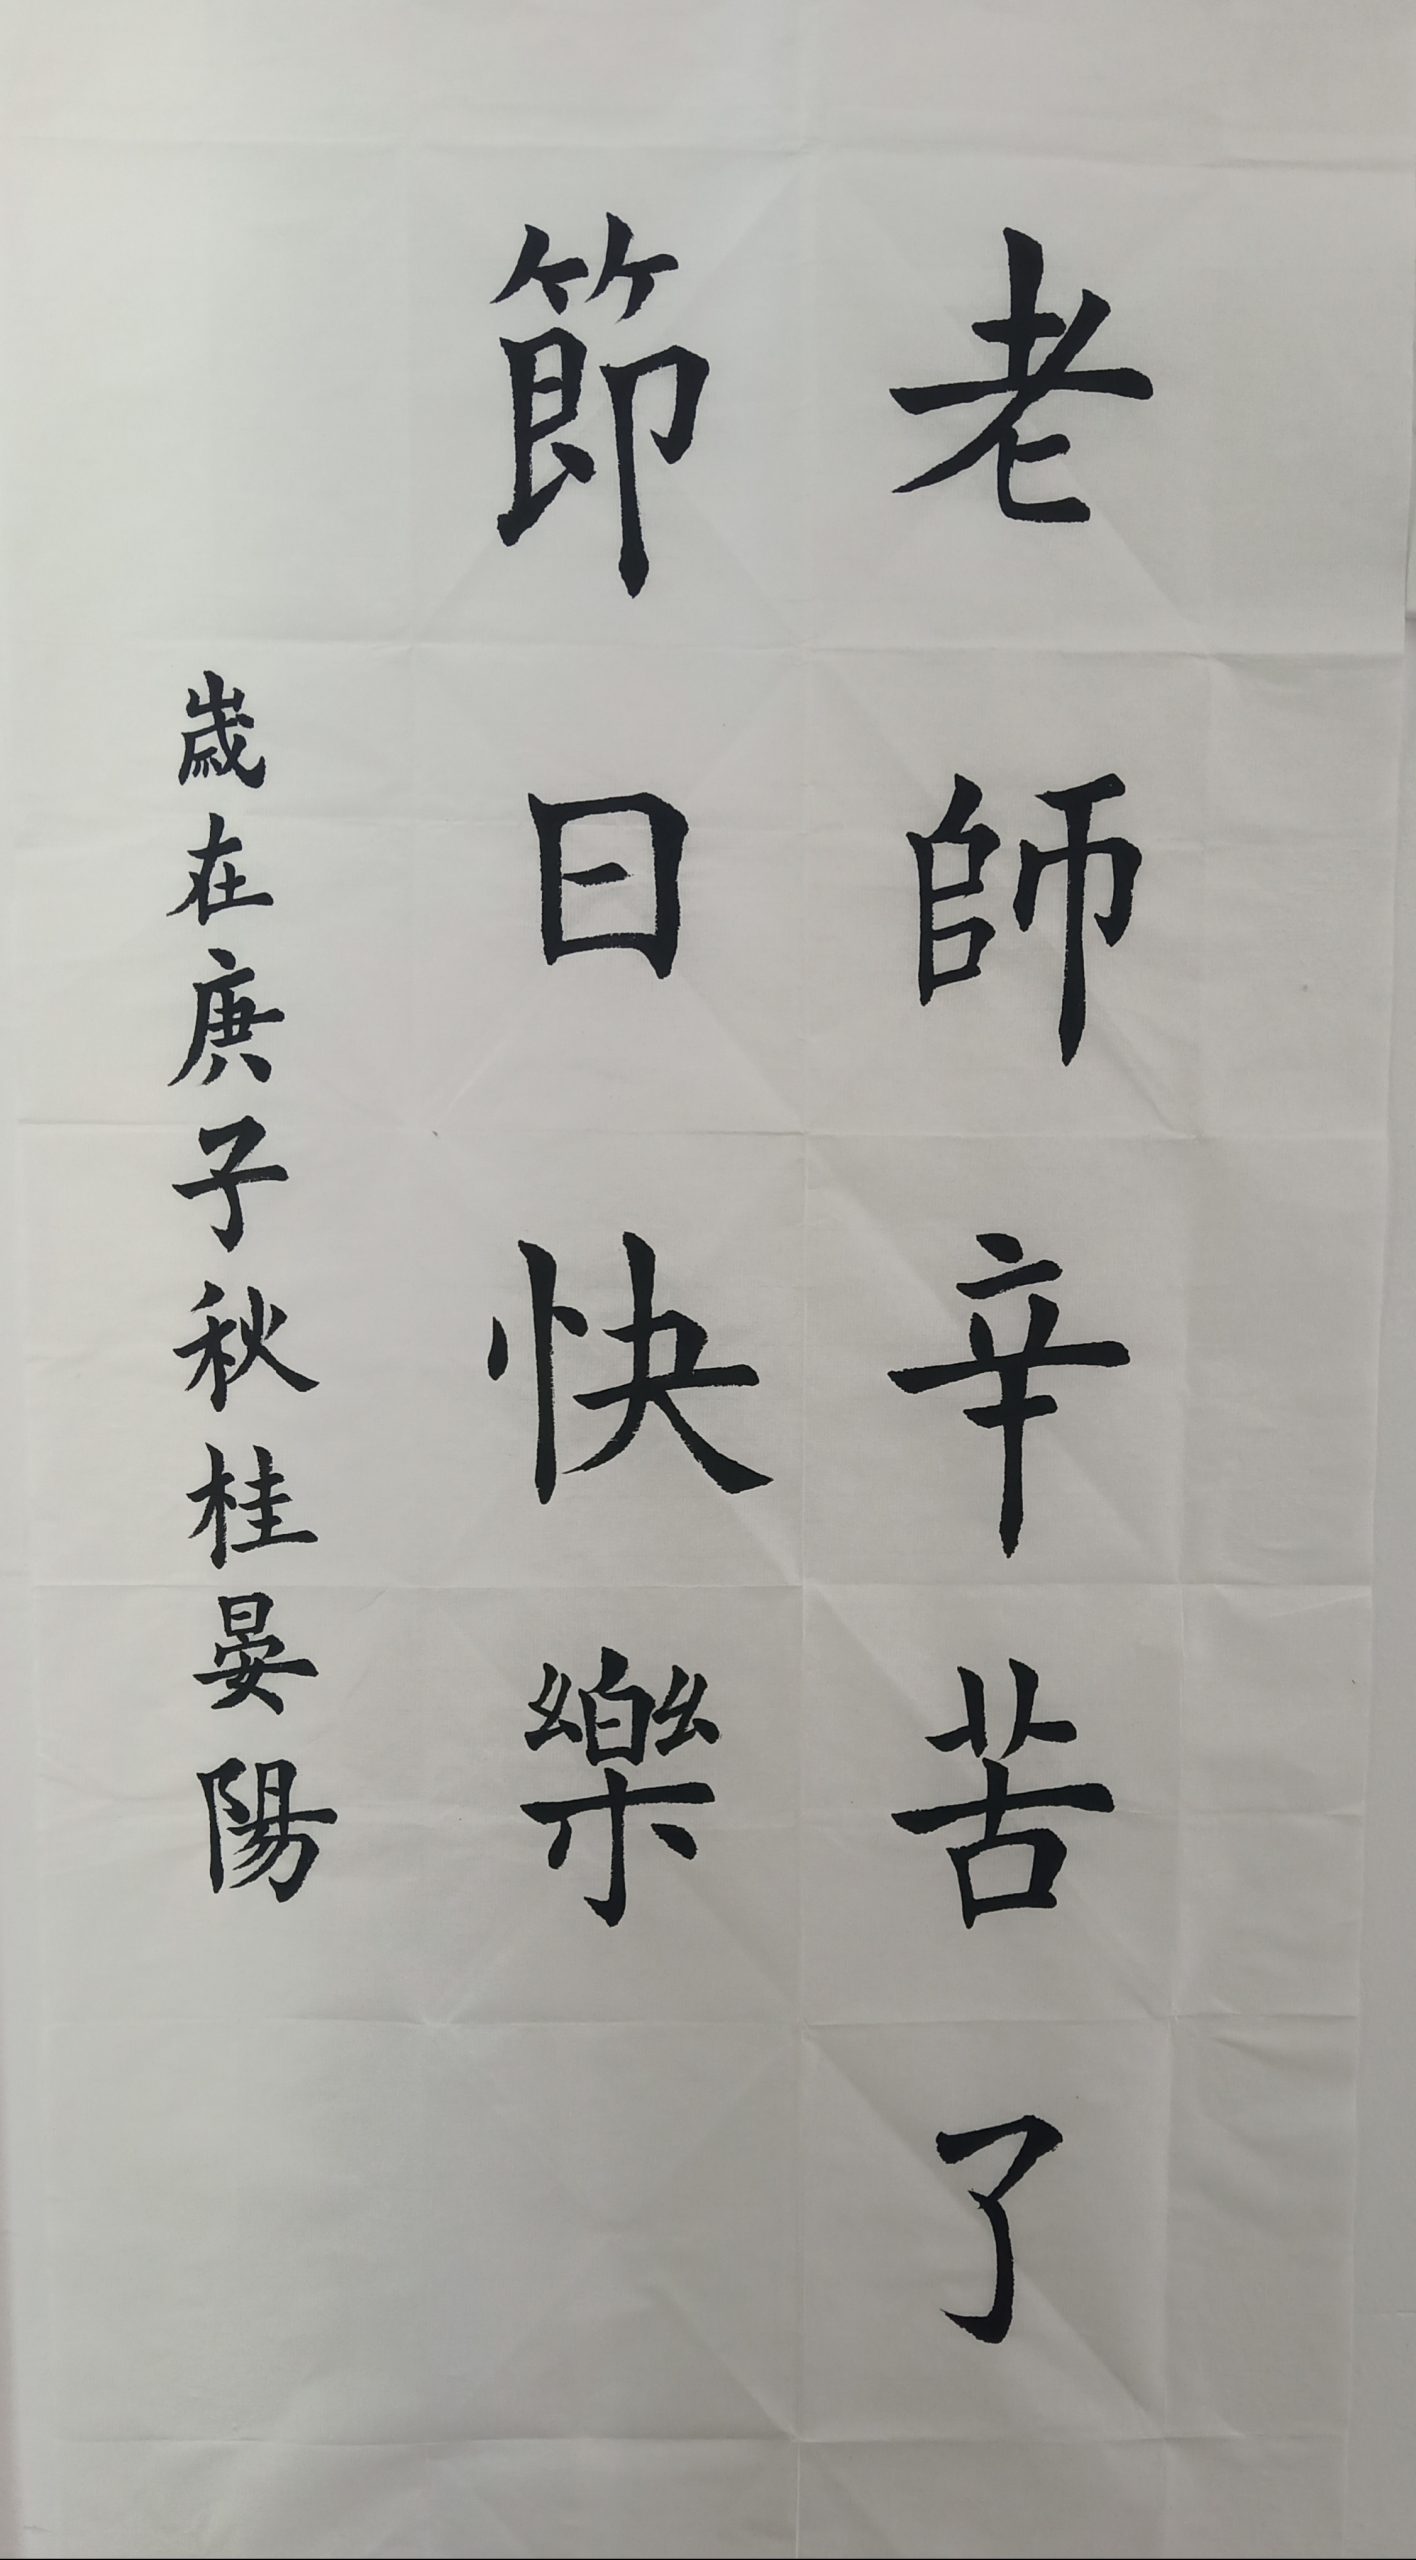 老師辛苦了
節日快樂
歲在庚子秋桂晏陽